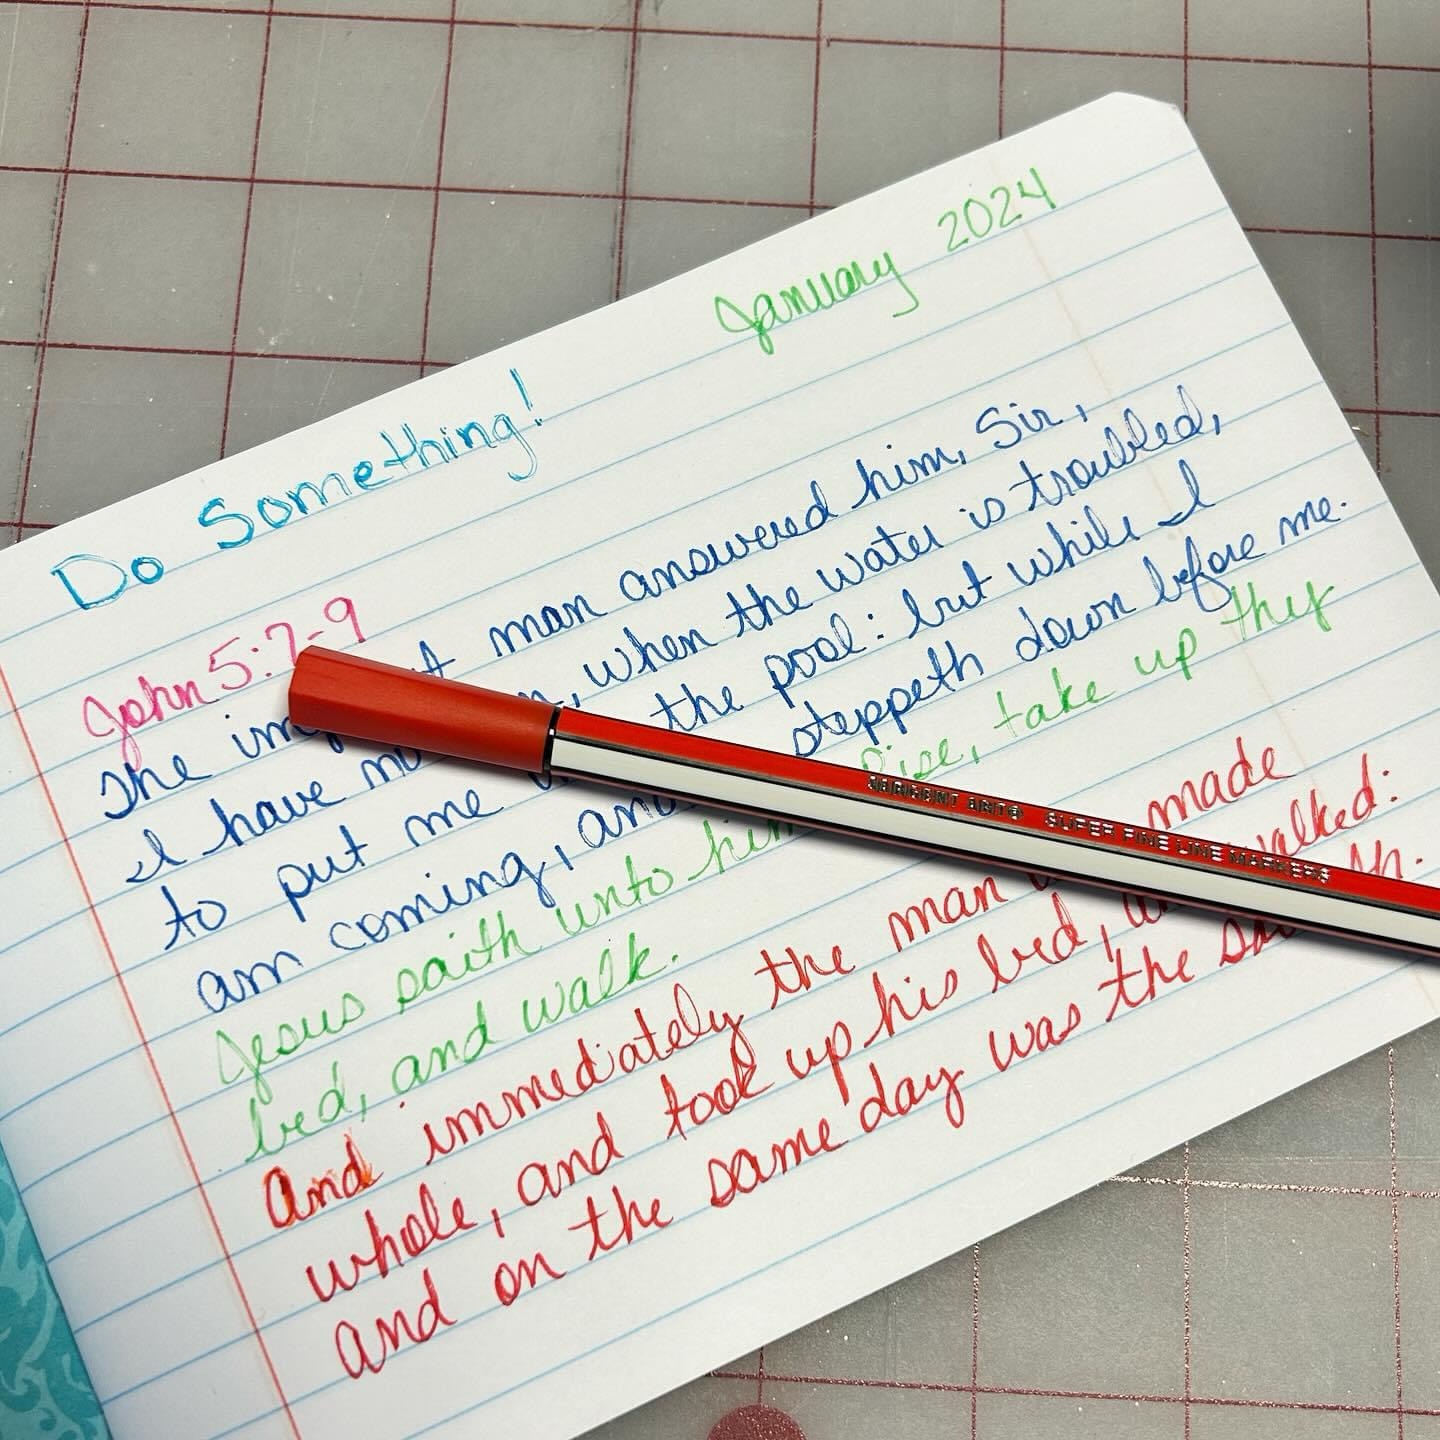 January 2024
Do Something!
John 5:7-9
The man answered him, Sir,
I have when the water is troubled,
to put me the pool: but while I
am coming, steppeth down before me.
Jesus saith unto him, Rise, take up thy
bed, and walk.
And immediately the man made
whole, and took up his bed, walked:
and on the same day was the
SARGENT ART® SUPER FINE LINE MARKERS